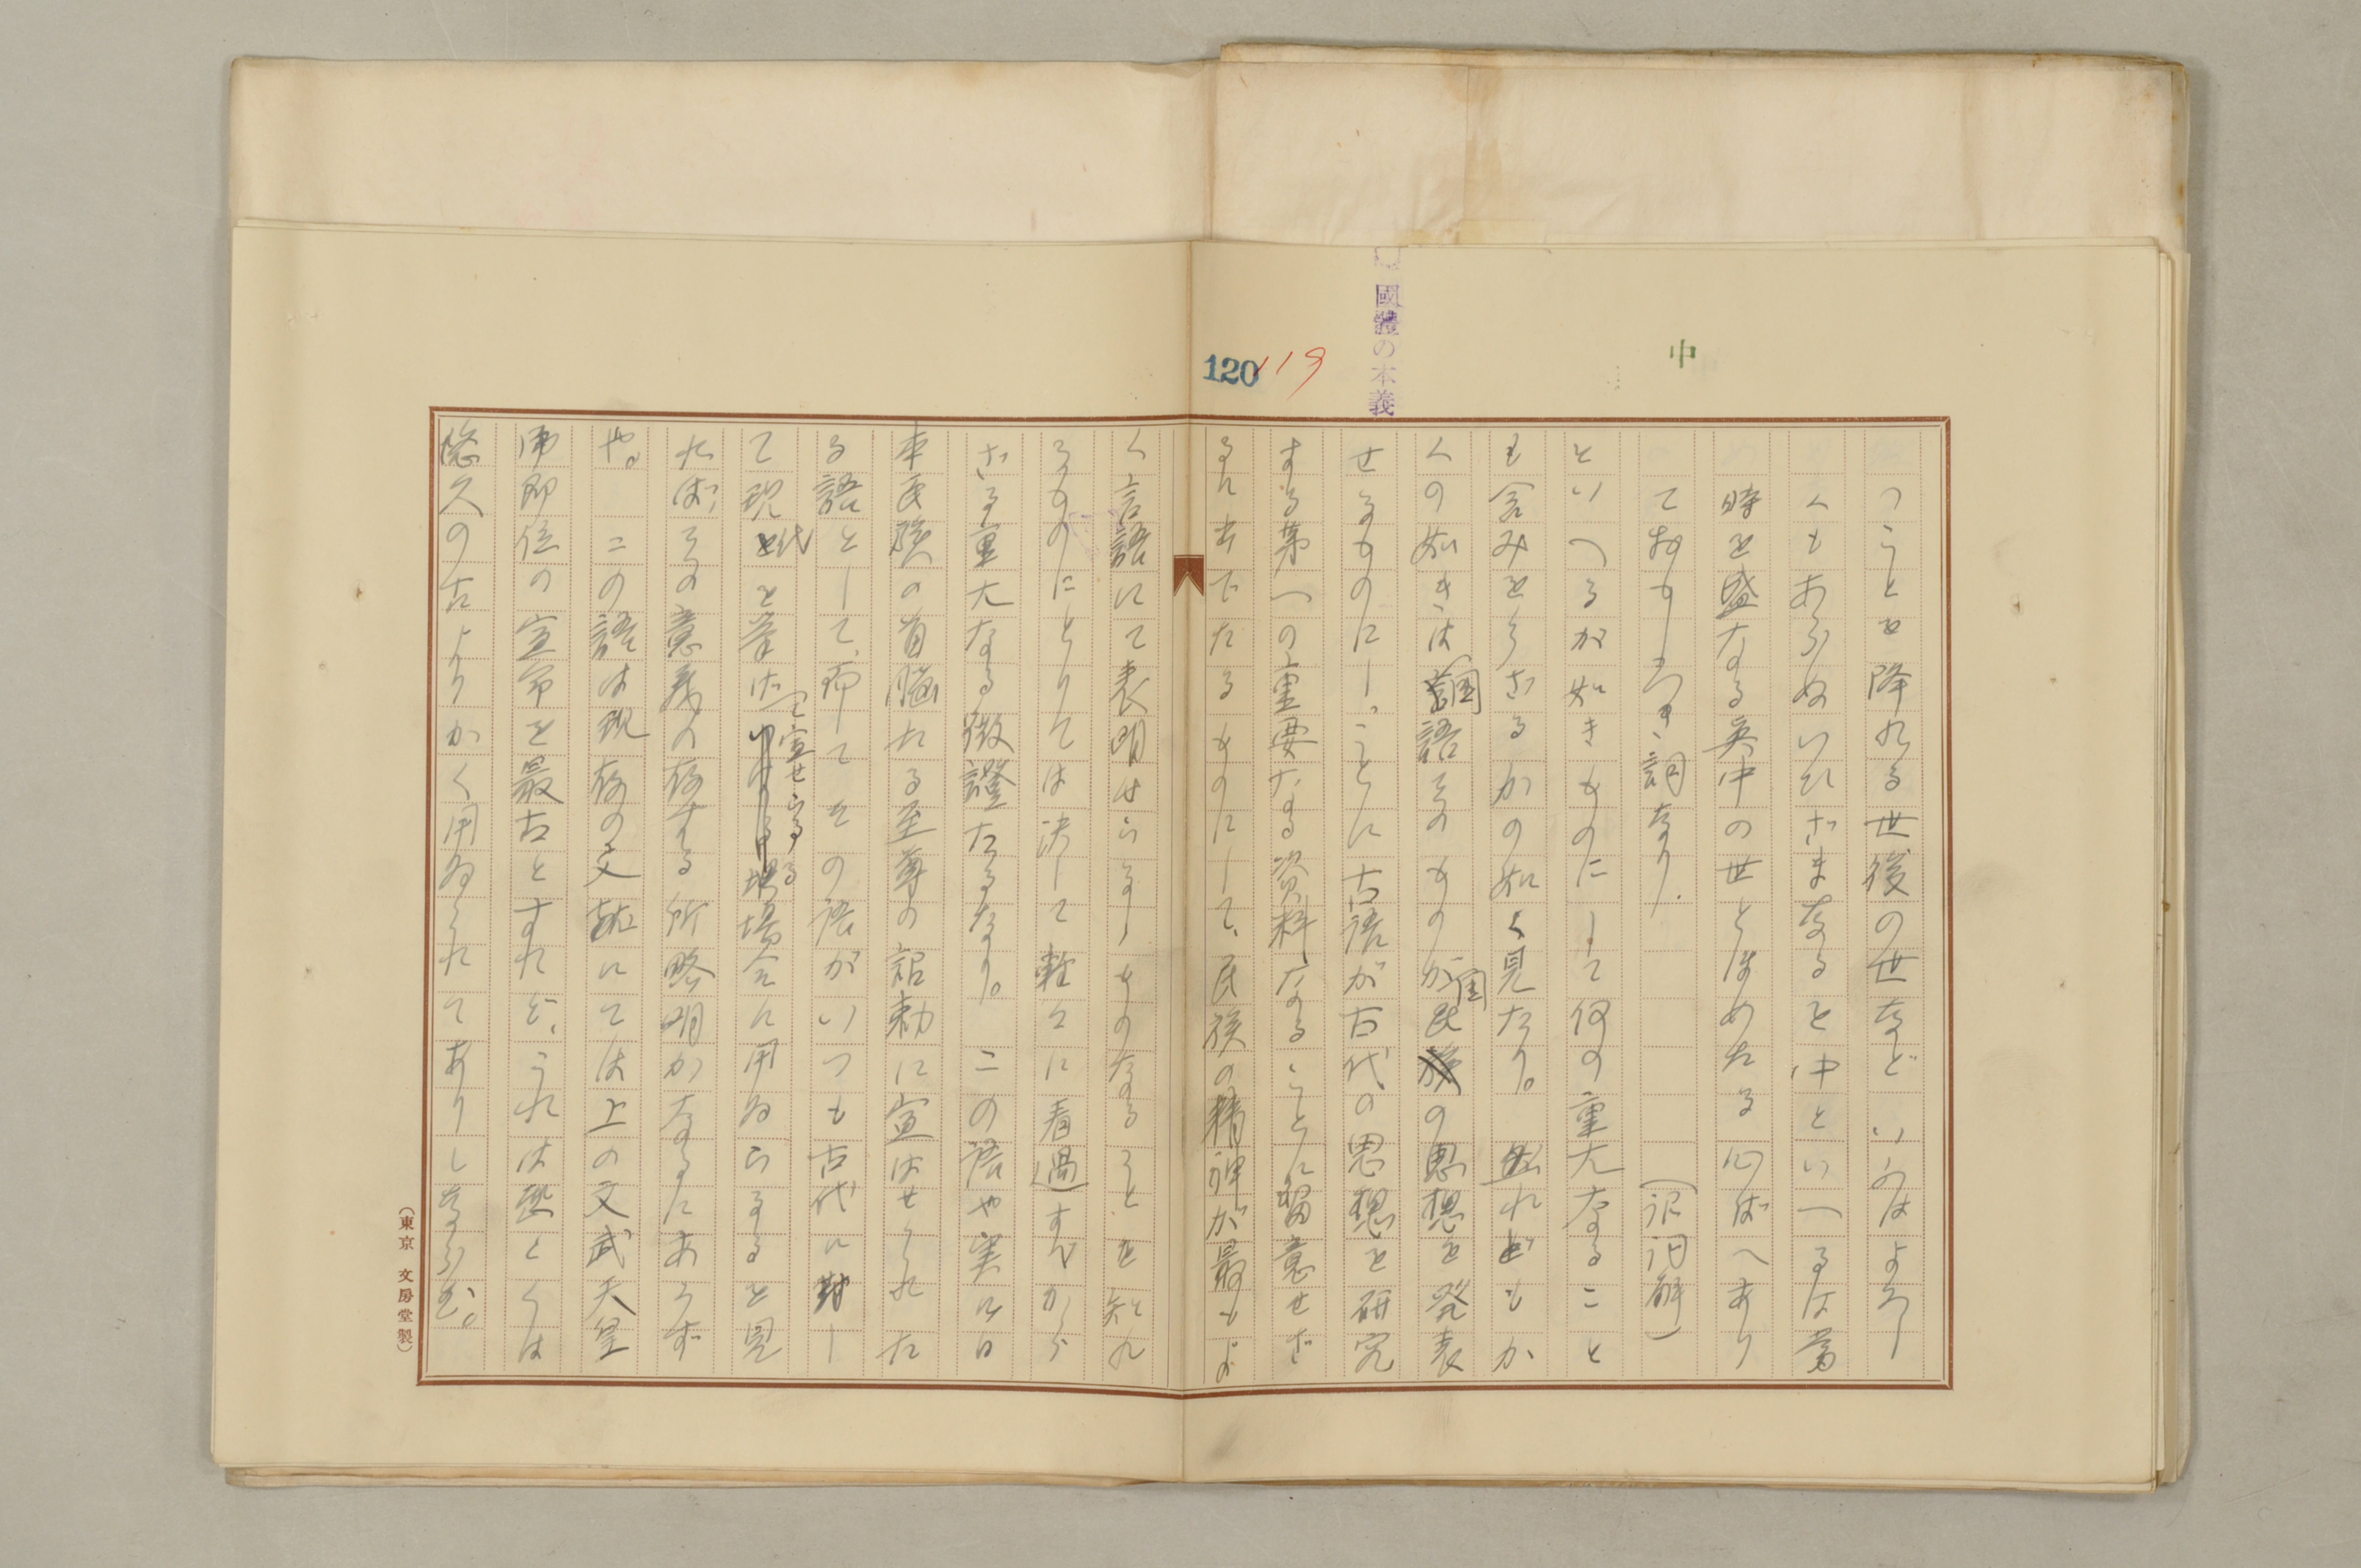 國體の本義
中
120
119
つことを降れる世後の世などいふはよろし
くもあらぬいひざまなるを中といへるは當
時を盛なる眞中の世とほめたる心ばへあり
ておもしろき詞なり。(詔詞解)
といへるが如きものにして何の重大なること
も含みをらざるかの如く見たり。然れどもか
くの如きは國語そのものが國民の思想を発表
せるものにし。ことに古語が古代の思想を研究
する第一の重要なる資料なることに留意せざ
るに出でたるものにして、民族の精神が最もよ
く言語にて表明せらるゝものなることを知れ
るものにとりては決して軽々に看過すべから
ざる重大なる徴證たるなり。この語や実に日
本民族の首脳たる至尊の詔勅に宣はせられた
る語として、而してその語がいつも古代に対し
て現代を挙げ宣せらるる場合に用ゐらるるを見
れば、その意義の存する所略明かなるにあらず
や。この語は現存の文献にては上の文武天皇
御即位の宣命を最古とすれど、これは恐らくは
悠久の古よりかく用ゐられてありしならむ。
(東京 文房堂製)